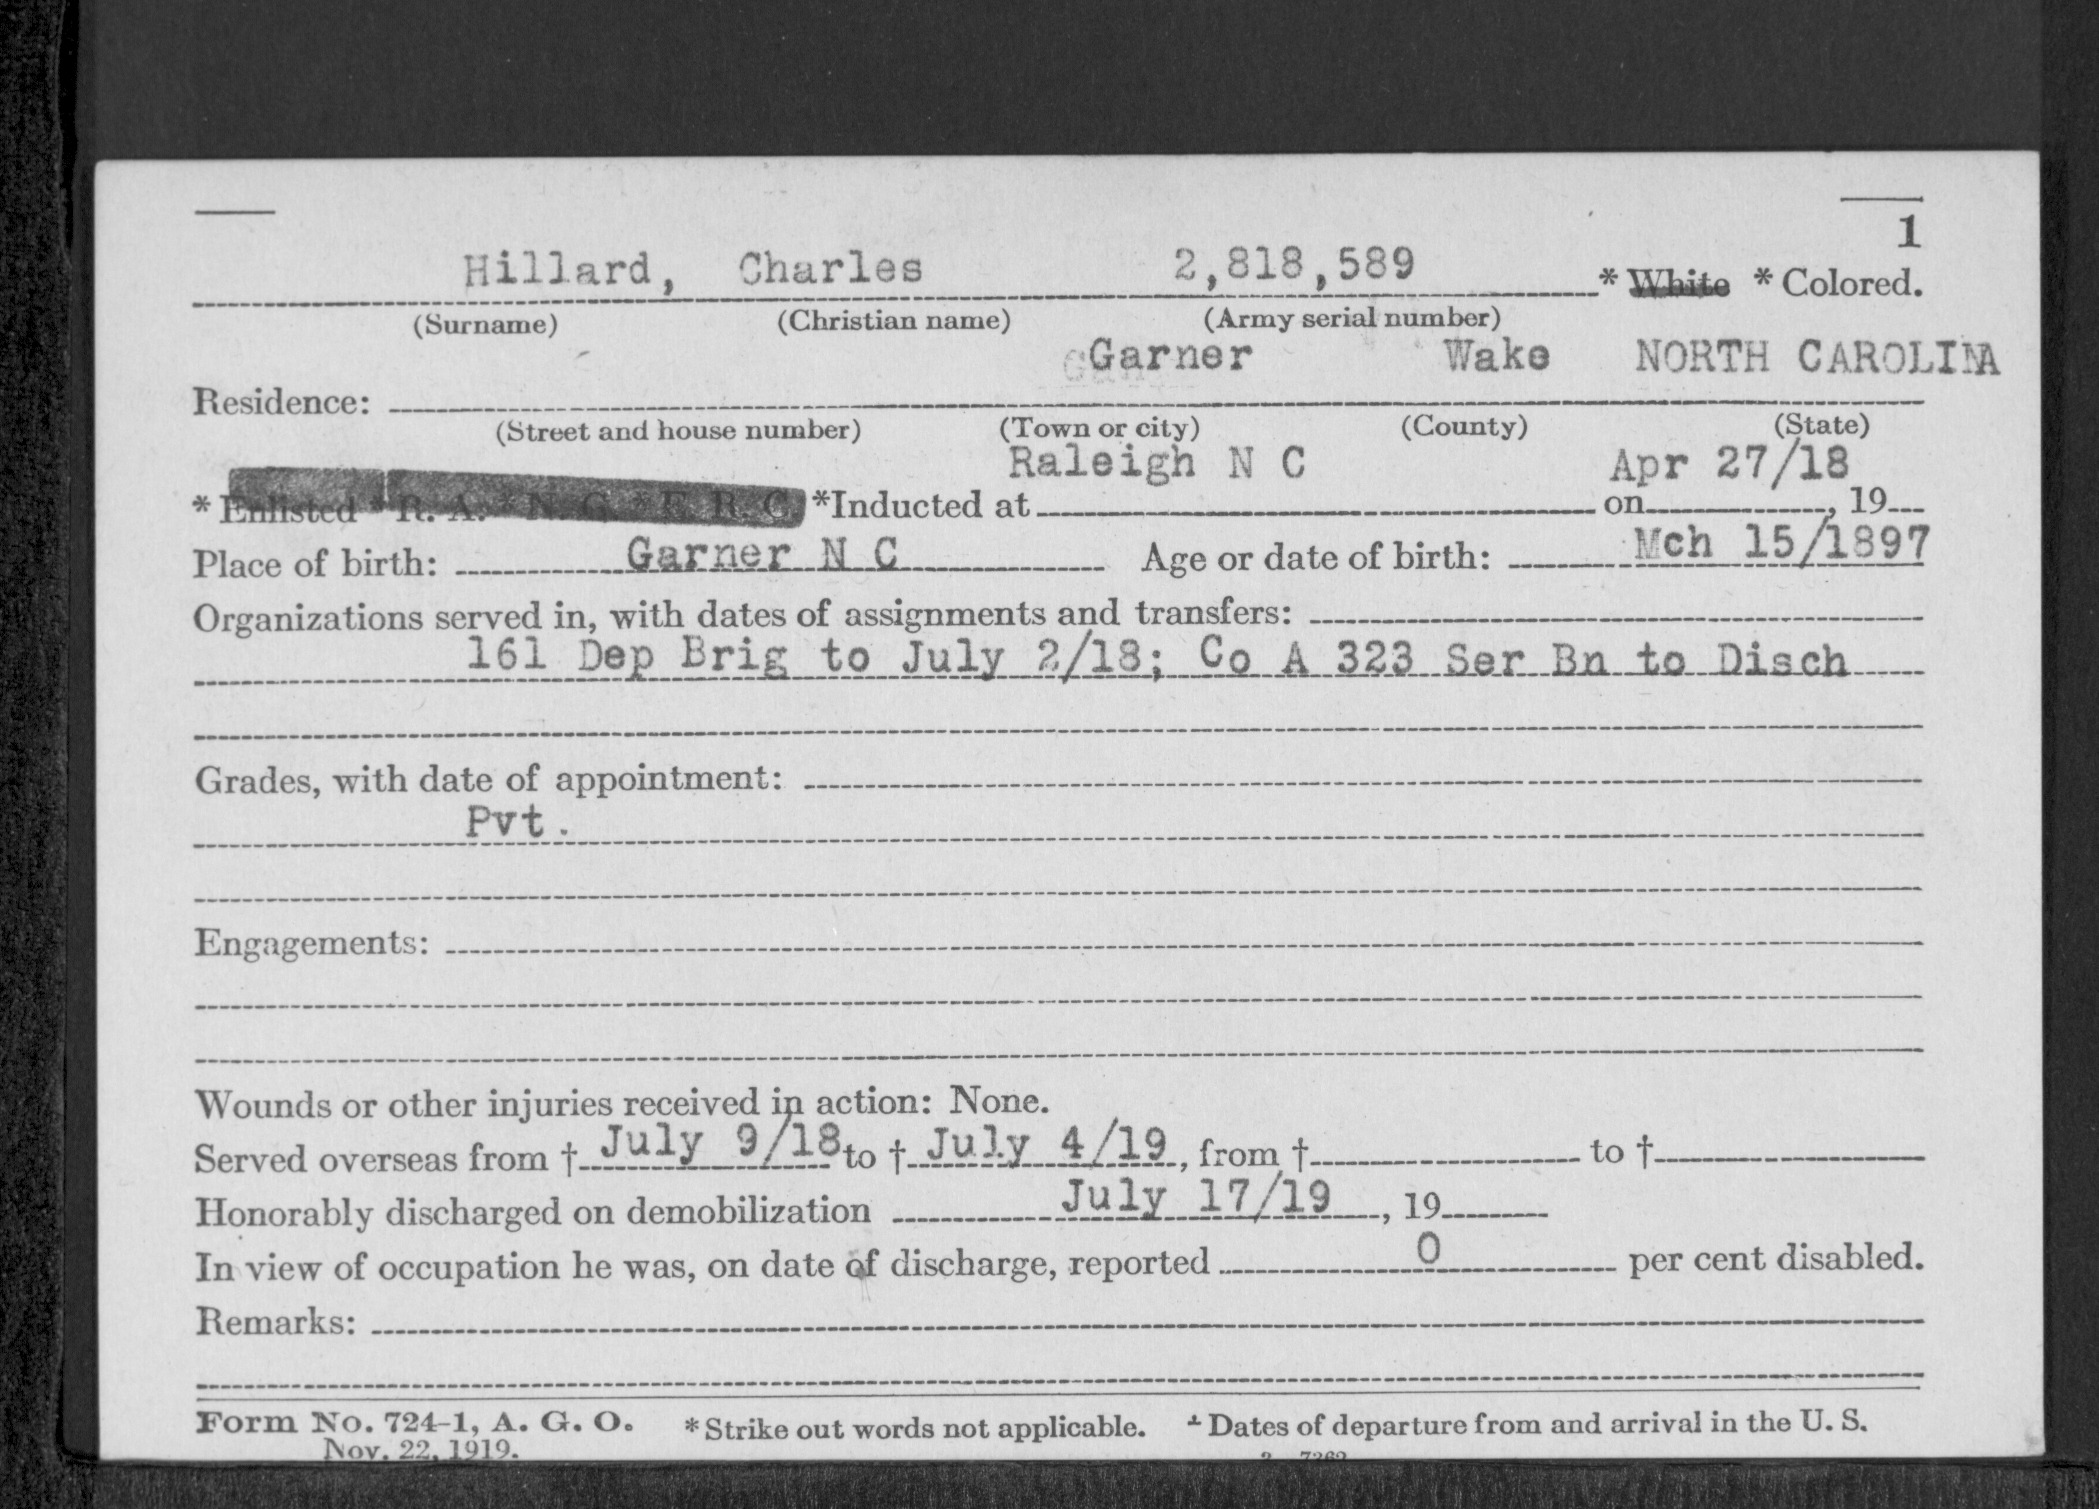 1
Hillard, Charles 2,818,589 * White * Colored.
(Surname) (Christian name) (Army serial number)
Garner Wake NORTH CAROLINA
Residence:
(Street and house number) (Town or city) (County) (State)
Raleigh N C Apr 27/18
* Enlisted * R. A. * N. G. * E. R. C. *Inducted at on , 19
Place of birth: Garner N C Age or date of birth: Mch 15/1897
Organizations served in, with dates of assignments and transfers:
161 Dep Brig to July 2/18; Co A 323 Ser Bn to Disch
Grades, with date of appointment:
Pvt.
Engagements:
Wounds or other injuries received in action: None.
Served overseas from † July 9/18 to † July 4/19, from † to †
Honorably discharged on demobilization July 17/19, 19
In view of occupation he was, on date of discharge, reported 0 per cent disabled.
Remarks:
Form No. 724-1, A. G. O. * Strike out words not applicable. † Dates of departure from and arrival in the U. S.
Nov. 22, 1919.